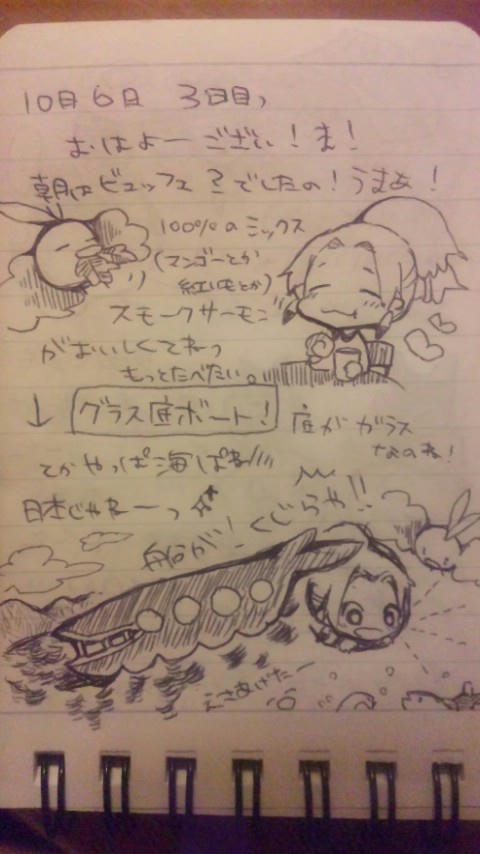 10月6日 3日目、
おはよーござい!ま!
朝はビュッフェ?でしたの!うまぁ!
100%のミックス
(マンゴーとか
紅いもとか)
スモークサーモン
がおいしくてねっ
もっとたべたい。
↓ グラス底ボート!
底がガラス
なのね!
てかやっぱ海ぱね////
日本じゃねーっ
船が!くじらや!!
えさあげたー